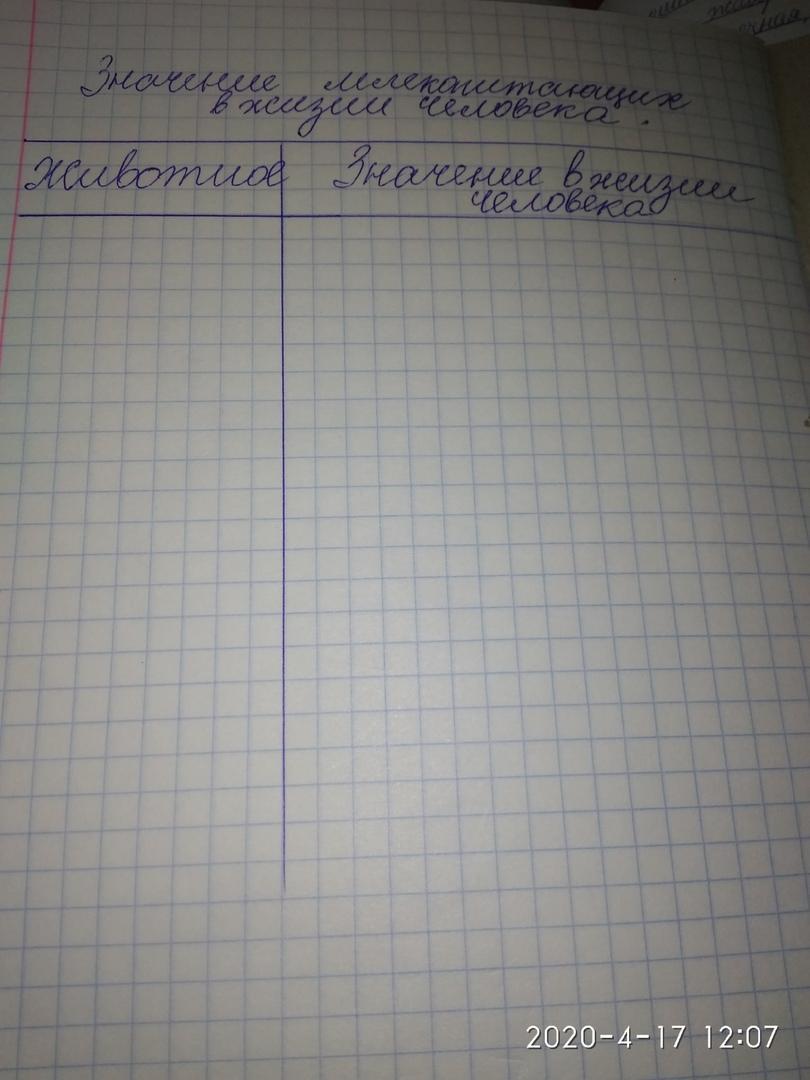 Значение млекопитающих
в жизни человека.
Животное
Значение в жизни
человека
2020-4-17 12:07